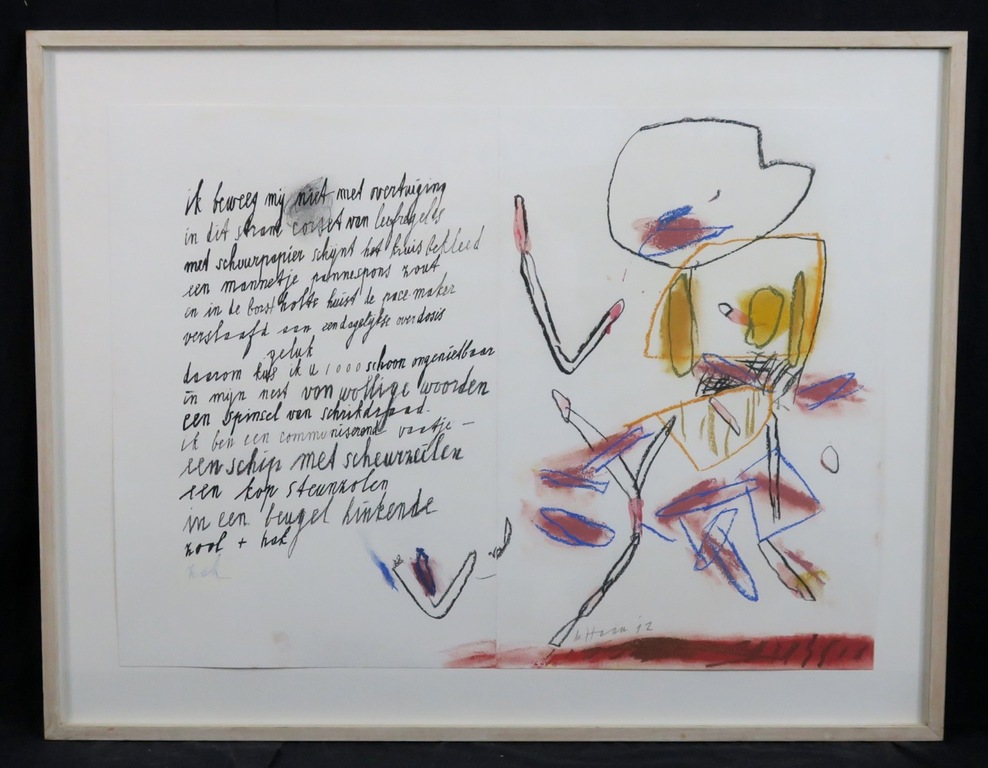 ik beweeg mij niet met overtuiging
in dit stram corset van leefregels
met schuurpapier schijnt het kruis bekleed
een mannetje pannespons zout
en in de borstholte huist de pace-maker
verslaafd aan eendagelijkse overdosis
geluk
daarom kus ik u 1000 schoon ongenietbaar
in mijn nest van wollige woorden
een spinsel van schrikdraad.
ik ben een communiserend vaatje –
een schip met scheurzeilen
een kop steunzolen
in een beugel hinkende
zool + hak
hak
12